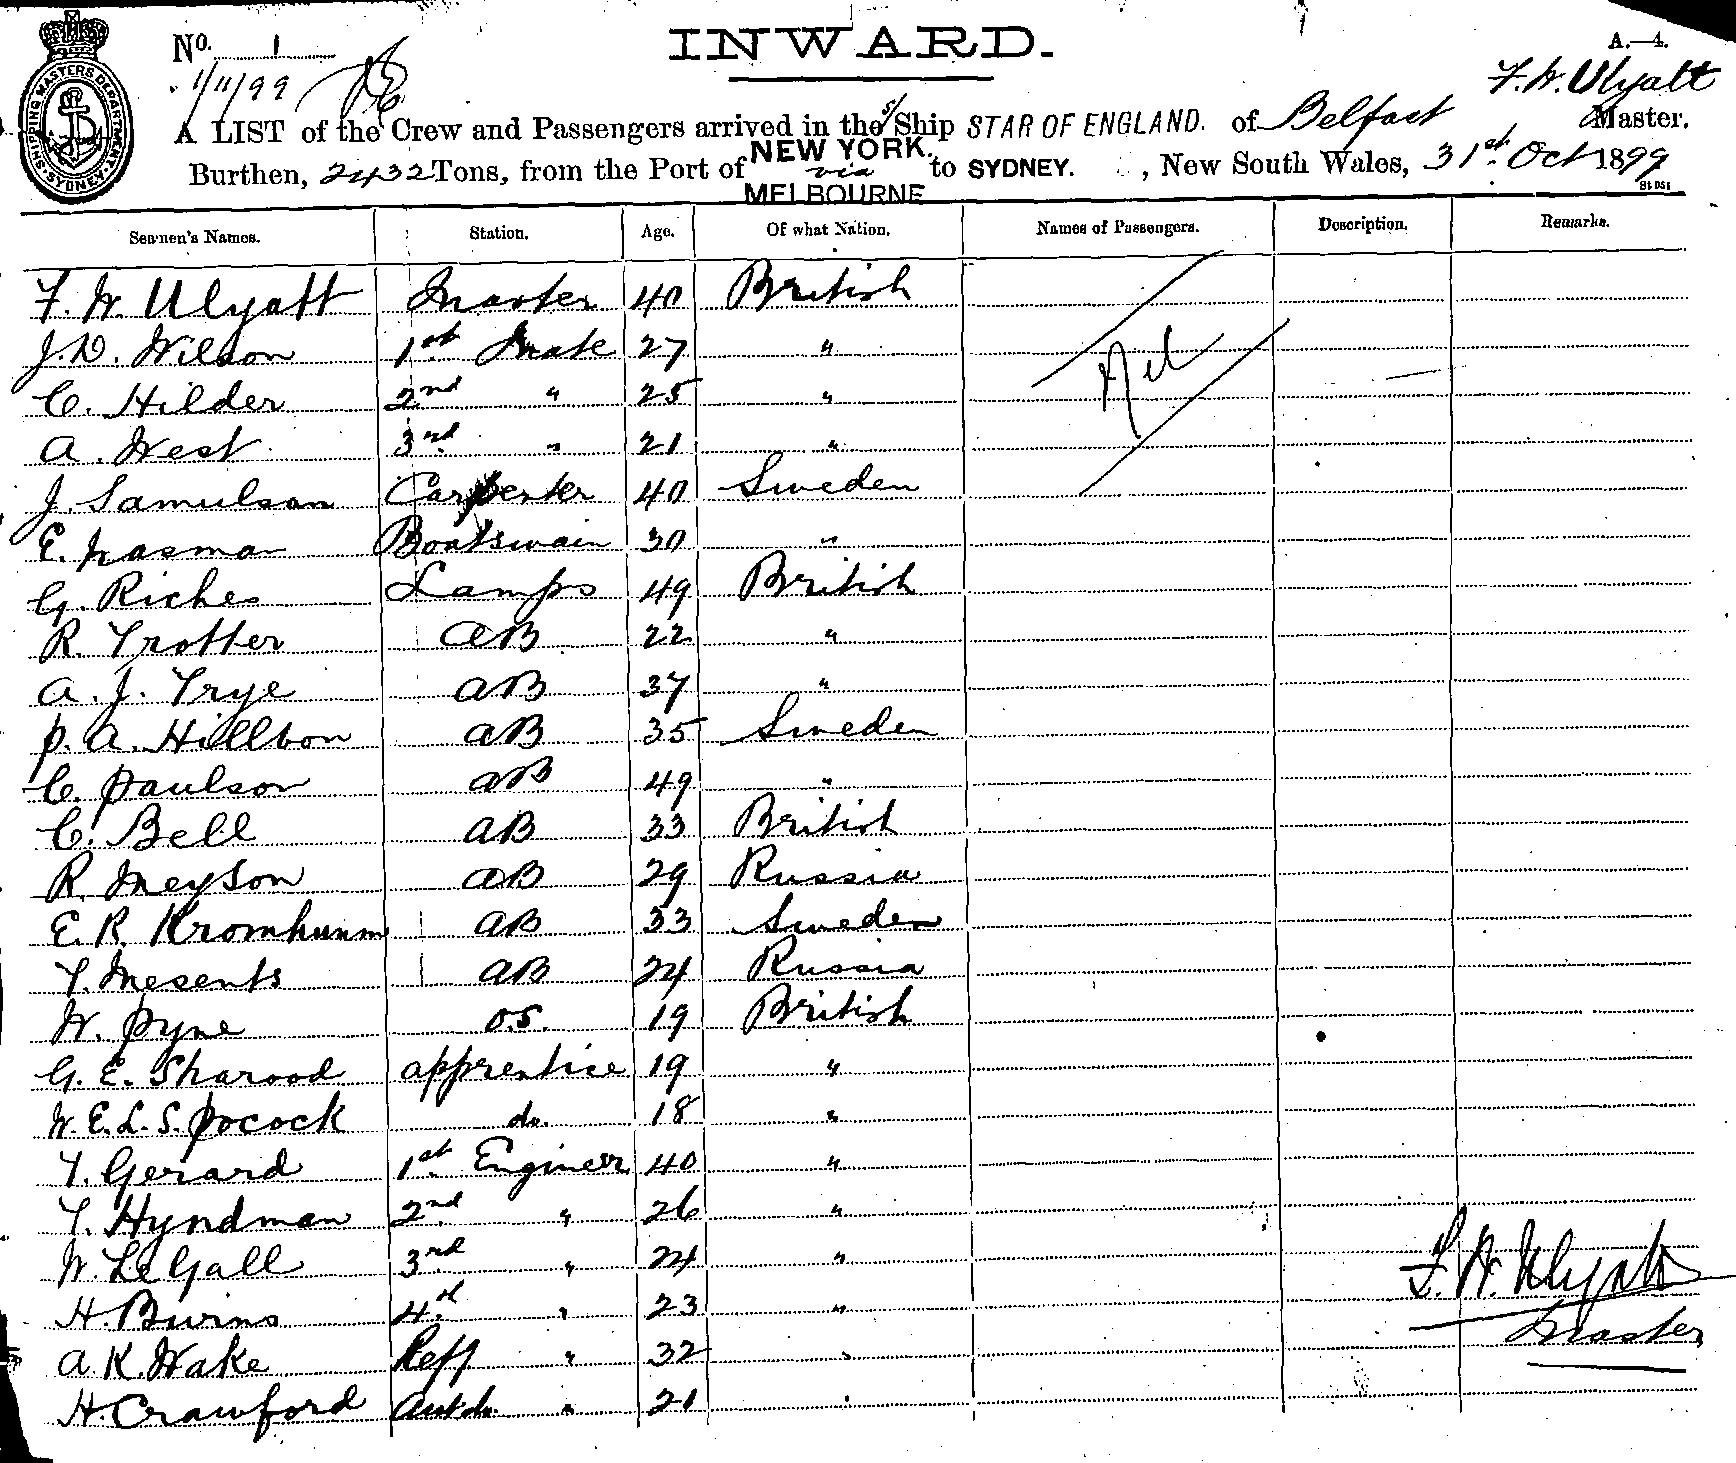 No. 1
INWARD.
A.—4.
1/11/99
F. W. Ulyatt
A LIST of the Crew and Passengers arrived in the s/ Ship STAR OF ENGLAND. of Belfast Master.
Burthen, 2432 Tons, from the Port of NEW YORK. via MELBOURNE to SYDNEY. , New South Wales, 31st Oct 1899
SHIPPING MASTERS DEPARTMENT SYDNEY
Seamen's Names. Station. Age. Of what Nation. Names of Passengers. Description. Remarks.
F. W. Ulyatt Master 40 British
J. D. Wilson 1st Mate 27 "
C. Hilder 2nd " 25 "
A. West 3rd " 21 "
Nil
J. Samulson Carpenter 40 Sweden
E. Nasman Boatswain 30 "
G. Riches Lamps 49 British
R. Trotter AB 22 "
A. J. Trye AB 37 "
P. A. Hillbon AB 35 Sweden
C. Paulson AB 49 "
C. Bell AB 33 British
R. Meyson AB 29 Russia
E. R. AB 33 Sweden
T. Mesents AB 24 Russia
W. Pyne O.S. 19 British
G. E. Sharood apprentice 19 "
W. E. L. S. Pocock do. 18 "
T. Gerard 1st Engineer 40 "
T. Hyndman 2nd " 26 "
W. Le Gall 3rd " 24 "
H. Burns 4th " 23 "
A. K. Wake Refg " 32 "
H. Crawford " 21 "
F. W. Ulyatt
Master